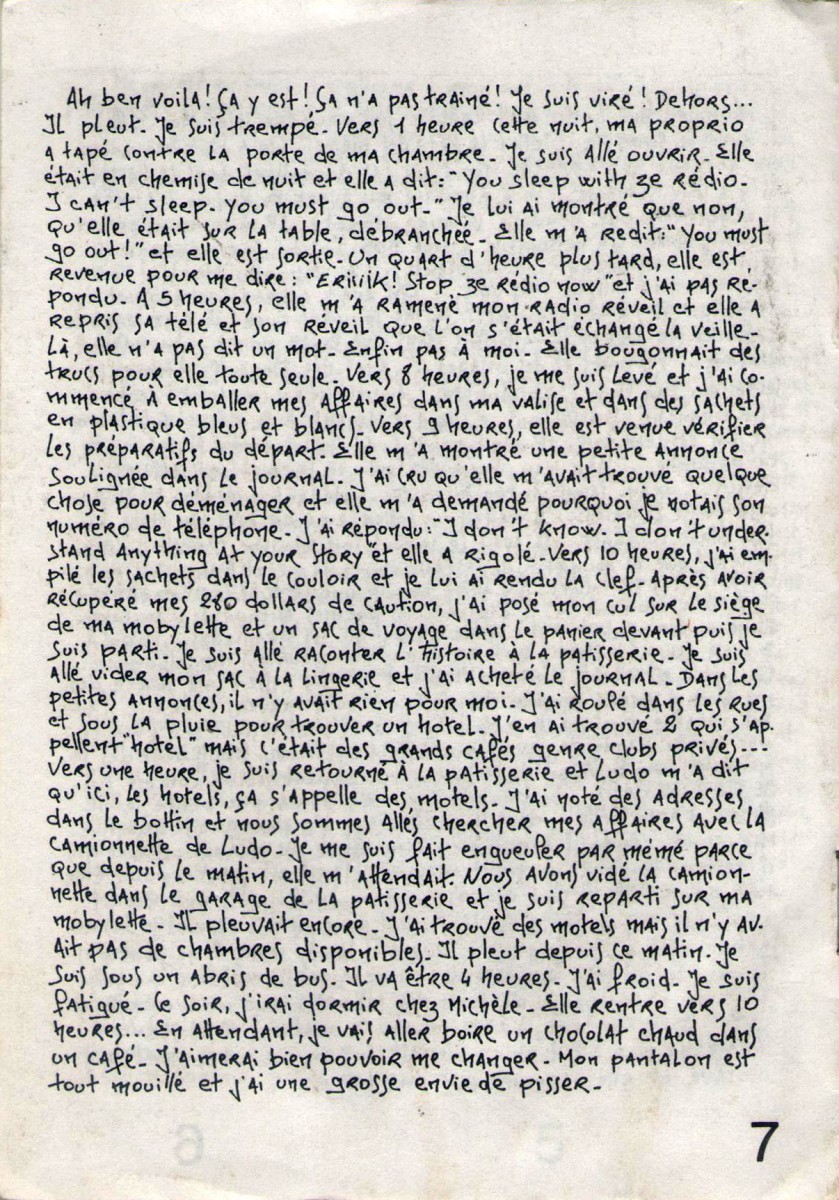 Ah ben voilà! Ça y est! Ça n'a pas trainé! Je suis viré! Dehors...
Il pleut. Je suis trempé. Vers 1 heure cette nuit, ma proprio
a tapé contre la porte de ma chambre. Je suis allé ouvrir. Elle
était en chemise de nuit et elle a dit: "You sleep with ze rédio.
I can't sleep. You must go out." Je lui ai montré que non,
qu'elle était sur la table, débranchée. Elle m'a redit: "You must
go out!" et elle est sortie. Un quart d'heure plus tard, elle est
revenue pour me dire: "Eriiiik! Stop ze rédio now" et j'ai pas ré-
pondu. A 5 heures, elle m'a ramené mon radio réveil et elle a
repris sa télé et son réveil que l'on s'était échangé la veille.
Là, elle n'a pas dit un mot. Enfin pas à moi. Elle bougonnait des
trucs pour elle toute seule. Vers 8 heures, je me suis levé et j'ai co-
mmencé à emballer mes affaires dans ma valise et dans des sachets
en plastique bleus et blancs. Vers 9 heures, elle est venue vérifier
les préparatifs du départ. Elle m'a montré une petite annonce
soulignée dans le journal. J'ai cru qu'elle m'avait trouvé quelque
chose pour déménager et elle m'a demandé pourquoi je notais son
numéro de téléphone. J'ai répondu: "I don't know. I don't under-
stand anything at your story" et elle a rigolé. Vers 10 heures, j'ai em-
pilé les sachets dans le couloir et je lui ai rendu la clef. Après avoir
récupéré mes 280 dollars de caution, j'ai posé mon cul sur le siège
de ma mobylette et un sac de voyage dans le panier devant puis je
suis parti. Je suis allé raconter l'histoire à la patisserie. Je suis
allé vider mon sac à la lingerie et j'ai acheté le journal. Dans les
petites annonces, il n'y avait rien pour moi. J'ai roulé dans les rues
et sous la pluie pour trouver un hotel. J'en ai trouvé 2 qui s'ap-
pellent "hotel" mais c'était des grands cafés genre clubs privés...
Vers une heure, je suis retourné à la patisserie et Ludo m'a dit
qu'ici, les hotels, ça s'appelle des motels. J'ai noté des adresses
dans le bottin et nous sommes allés chercher mes affaires avec la
camionnette de Ludo. Je me suis fait engueuler par mémé parce
que depuis le matin, elle m'attendait. Nous avons vidé la camion-
nette dans le garage de la patisserie et je suis reparti sur ma
mobylette. Il pleuvait encore. J'ai trouvé des motels mais il n'y av-
ait pas de chambres disponibles. Il pleut depuis ce matin. Je
suis sous un abris de bus. Il va être 4 heures. J'ai froid. Je suis
fatigué. Ce soir, j'irai dormir chez Michèle. Elle rentre vers 10
heures... En attendant, je vais aller boire un chocolat chaud dans
un café. J'aimerai bien pouvoir me changer. Mon pantalon est
tout mouillé et j'ai une grosse envie de pisser.
7